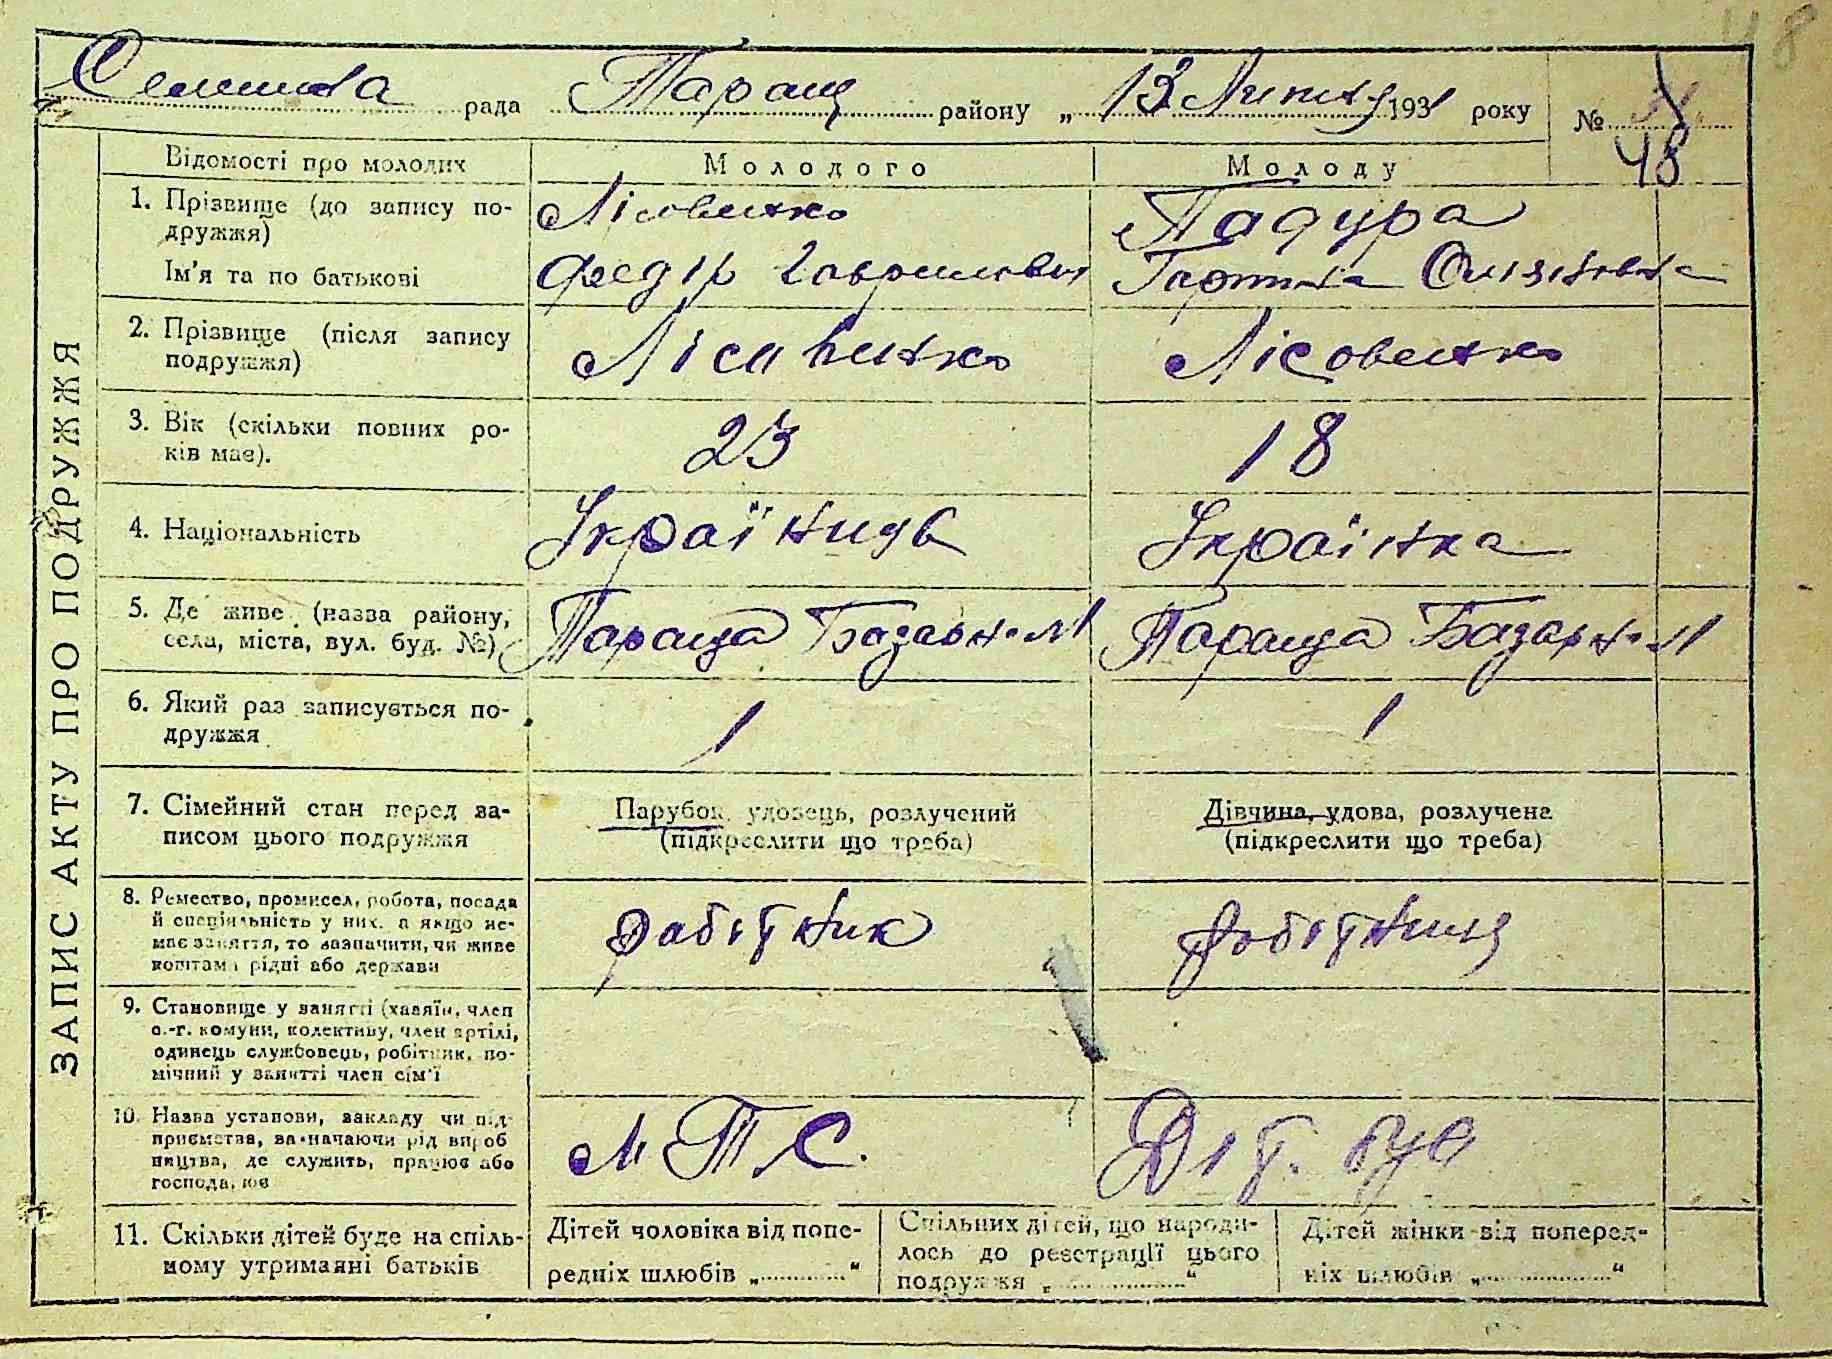 Селищна рада Таращ району „ 13 Липня 1931 року №
48
ЗАПИС АКТУ ПРО ПОДРУЖЖЯ
Відомості про молодих Молодого Молоду
1. Прізвище (до запису по-
дружжя) Лісовенко Падура
Ім'я та по батькові Федір Гаврилович
2. Прізвище (після запису
подружжя) Лісовенко Лісовенко
3. Вік (скільки повних ро-
ків має). 23 18
4. Національність Українець Українка
5. Де живе (назва району,
села, міста, вул. буд. №) Тараща Базарн. Тараща Базарн.
6. Який раз записується по-
дружжя 1 1
7. Сімейний стан перед за-
писом цього подружжя
Парубок, удовець, розлучений
(підкреслити що треба)
Дівчина, удова, розлучена
(підкреслити що треба)
8. Ремество, промисел, робота, посада
й спеціяльність у них, а якщо не-
має заняття, то зазначити, чи живе
коштами рідні або держави
робітник робітниця
9. Становище у занятті (хазяїн, член
с.-г. комуни, колективу, член артілі,
одинець службовець, робітник, по-
мічний у занятті член сім'ї
10. Назва установи, закладу чи під-
приємства, зазначаючи рід вироб
ництва, де служить, працює або
господа, ює
МТС. Діт. буд
11. Скільки дітей буде на спіль-
ному утриманні батьків
Дітей чоловіка від попе-
редніх шлюбів „ “
Спільних дітей, що народи-
лось до реєстрації цього
подружжя „ “
Дітей жінки від поперед-
ніх шлюбів „ “